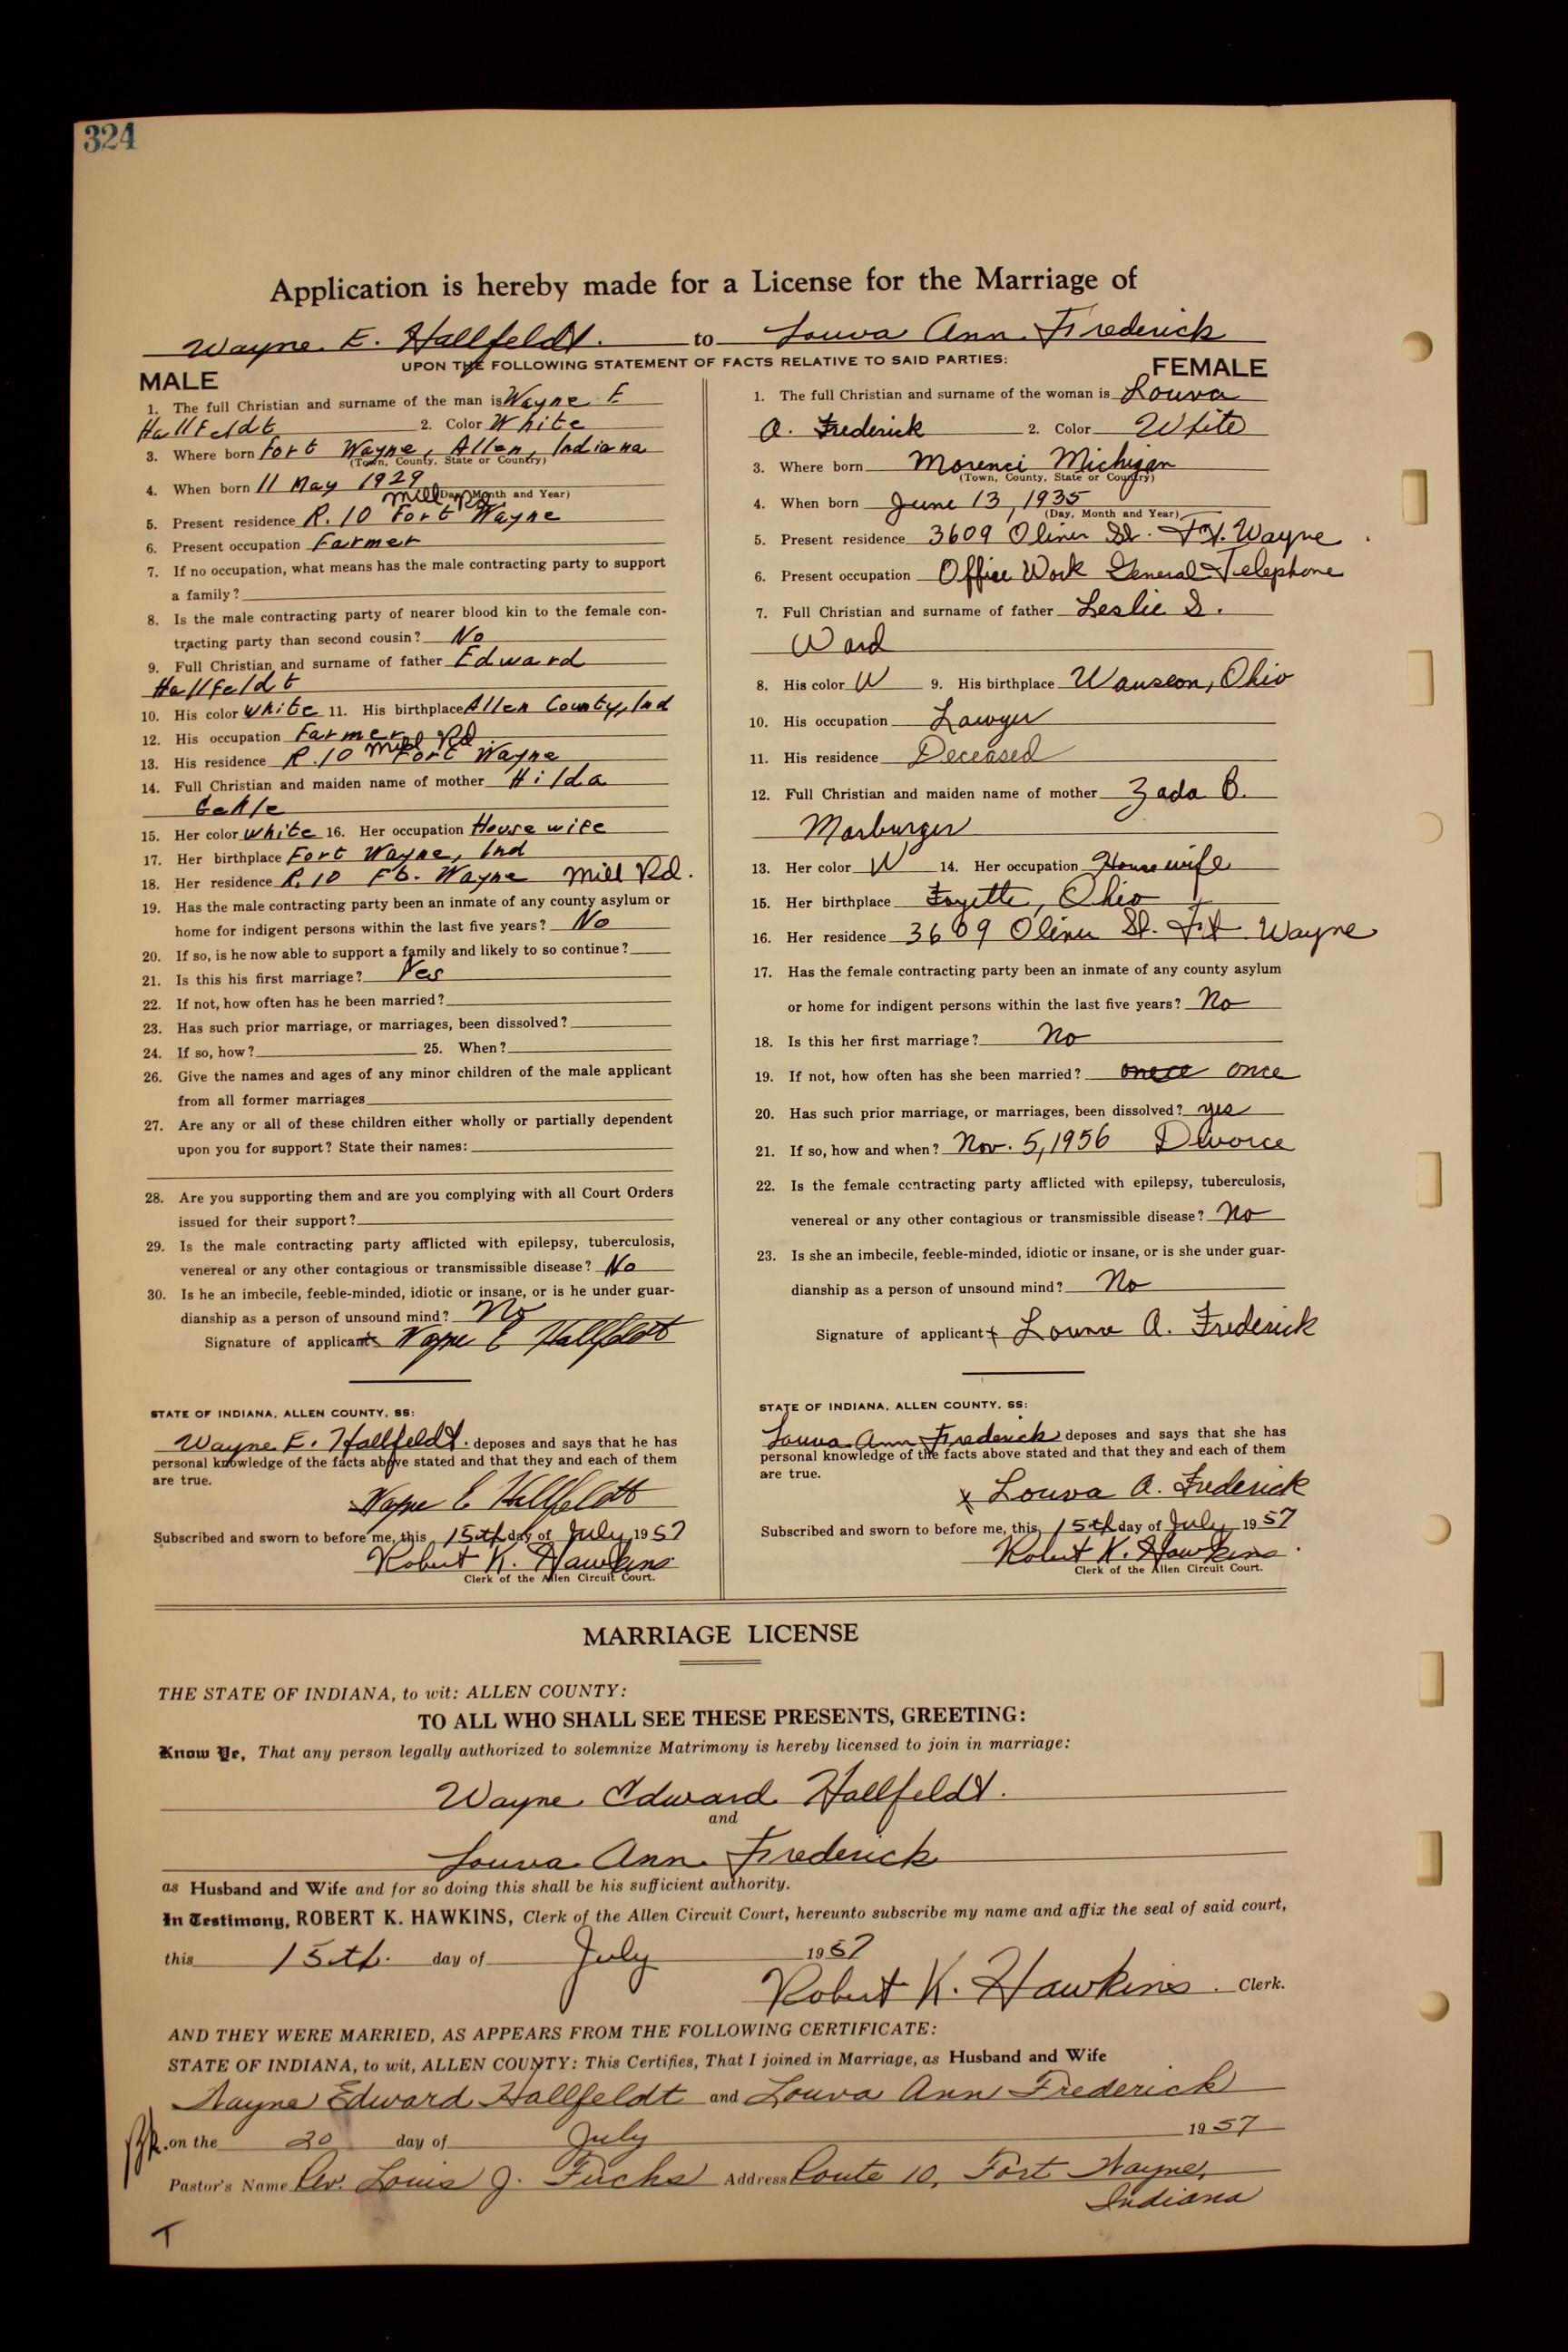 324
Application is hereby made for a License for the Marriage of
Wayne E. Hallfeldt. to Louva Ann Frederick
UPON THE FOLLOWING STATEMENT OF FACTS RELATIVE TO SAID PARTIES:
MALE
1. The full Christian and surname of the man is Wayne E
Hallfeldt 2. Color White
3. Where born Fort Wayne, Allen, Indiana
(Town, County, State or Country)
4. When born 11 May 1929
(Day, Month and Year)
Mill Rd.
5. Present residence R. 10 Fort Wayne
6. Present occupation Farmer
7. If no occupation, what means has the male contracting party to support
a family?
8. Is the male contracting party of nearer blood kin to the female con-
tracting party than second cousin? No
9. Full Christian and surname of father Edward
Hallfeldt
10. His color white 11. His birthplace Allen County, Ind
12. His occupation Farmer
Mill Rd
13. His residence R. 10 Fort Wayne
14. Full Christian and maiden name of mother Hilda
15. Her color white 16. Her occupation Housewife
17. Her birthplace Fort Wayne, Ind
18. Her residence R. 10 Ft. Wayne Mill Rd.
19. Has the male contracting party been an inmate of any county asylum or
home for indigent persons within the last five years? No
20. If so, is he now able to support a family and likely to so continue?
21. Is this his first marriage? Yes
22. If not, how often has he been married?
23. Has such prior marriage, or marriages, been dissolved?
24. If so, how? 25. When?
26. Give the names and ages of any minor children of the male applicant
from all former marriages
27. Are any or all of these children either wholly or partially dependent
upon you for support? State their names:
28. Are you supporting them and are you complying with all Court Orders
issued for their support?
29. Is the male contracting party afflicted with epilepsy, tuberculosis,
venereal or any other contagious or transmissible disease? No
30. Is he an imbecile, feeble-minded, idiotic or insane, or is he under guar-
dianship as a person of unsound mind? No
Signature of applicant x Wayne E Hallfeldt
STATE OF INDIANA, ALLEN COUNTY, SS:
Wayne E. Hallfeldt. deposes and says that he has
personal knowledge of the facts above stated and that they and each of them
are true.
Wayne E Hallfeldt
Subscribed and sworn to before me, this 15th day of July 1957
Robert K. Hawkins
Clerk of the Allen Circuit Court.
FEMALE
1. The full Christian and surname of the woman is Louva
A. Frederick 2. Color White
3. Where born Morenci Michigan
(Town, County, State or Country)
4. When born June 13, 1935
(Day, Month and Year)
5. Present residence 3609 Oliver St. Ft. Wayne
6. Present occupation Office Work General Telephone
7. Full Christian and surname of father Leslie S.
Ward
8. His color W 9. His birthplace Wauseon, Ohio
10. His occupation Lawyer
11. His residence Deceased
12. Full Christian and maiden name of mother Zada B.
Marburger
13. Her color W 14. Her occupation Housewife
15. Her birthplace Fayette, Ohio
16. Her residence 3609 Oliver St. Ft. Wayne
17. Has the female contracting party been an inmate of any county asylum
or home for indigent persons within the last five years? No
18. Is this her first marriage? No
19. If not, how often has she been married? once
20. Has such prior marriage, or marriages, been dissolved? yes
21. If so, how and when? Nov. 5, 1956 Divorce
22. Is the female contracting party afflicted with epilepsy, tuberculosis,
venereal or any other contagious or transmissible disease? No
23. Is she an imbecile, feeble-minded, idiotic or insane, or is she under guar-
dianship as a person of unsound mind? No
Signature of applicant x Louva A. Frederick
STATE OF INDIANA, ALLEN COUNTY, SS:
Louva Ann Frederick deposes and says that she has
personal knowledge of the facts above stated and that they and each of them
are true.
x Louva A. Frederick
Subscribed and sworn to before me, this 15th day of July 1957
Robert K. Hawkins.
Clerk of the Allen Circuit Court.
MARRIAGE LICENSE
THE STATE OF INDIANA, to wit: ALLEN COUNTY:
TO ALL WHO SHALL SEE THESE PRESENTS, GREETING:
Know Ye, That any person legally authorized to solemnize Matrimony is hereby licensed to join in marriage:
Wayne Edward Hallfeldt.
and
Louva Ann Frederick
as Husband and Wife and for so doing this shall be his sufficient authority.
In Testimony, ROBERT K. HAWKINS, Clerk of the Allen Circuit Court, hereunto subscribe my name and affix the seal of said court,
this 15th. day of July 1957
Robert K. Hawkins. Clerk.
AND THEY WERE MARRIED, AS APPEARS FROM THE FOLLOWING CERTIFICATE:
STATE OF INDIANA, to wit, ALLEN COUNTY: This Certifies, That I joined in Marriage, as Husband and Wife
Wayne Edward Hallfeldt and Louva Ann Frederick
on the 20 day of July 1957
Pastor's Name Rev. Louis J. Fuchs Address Route 10, Fort Wayne,
Indiana
T